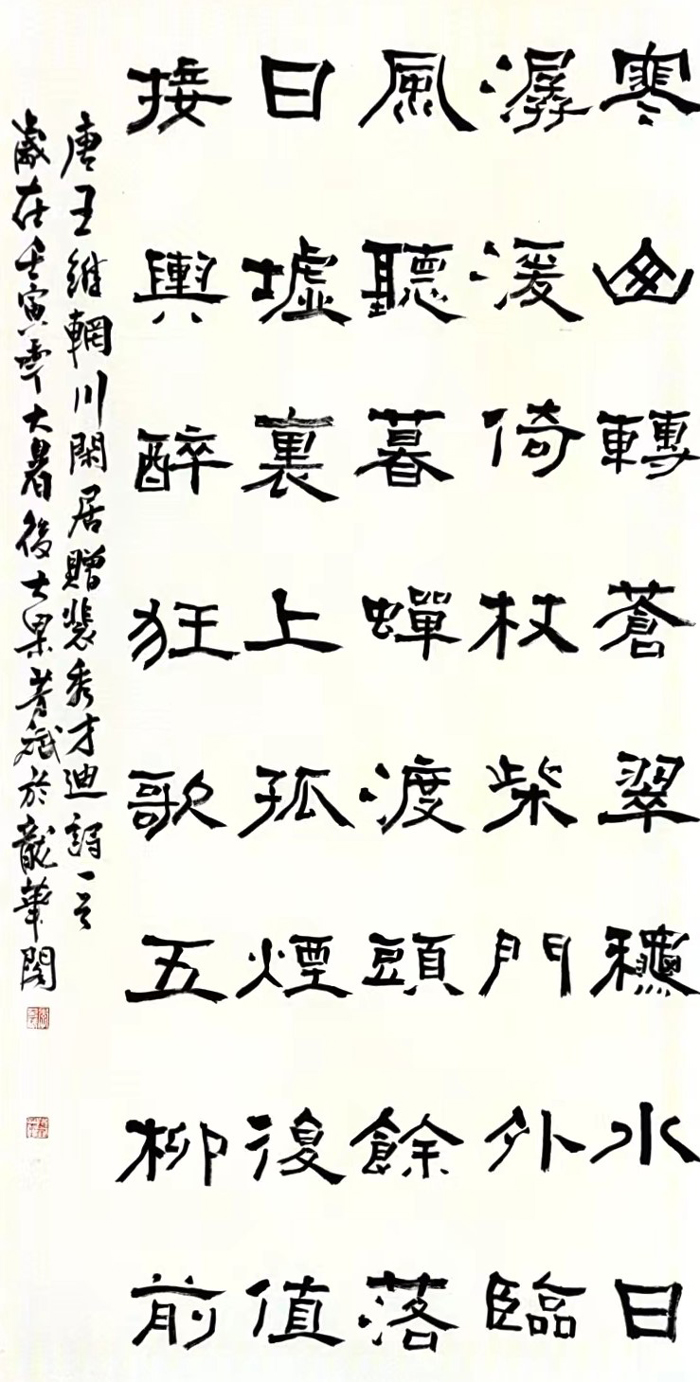 寒山轉蒼翠穐水日
潺湲倚杖柴門外臨
風聽暮蟬渡頭餘落
日墟裏上孤煙復值
接輿醉狂歌五柳前
唐王維輞川閑居贈裴秀才迪詩一首
歲在壬寅年大暑後於龍華閣